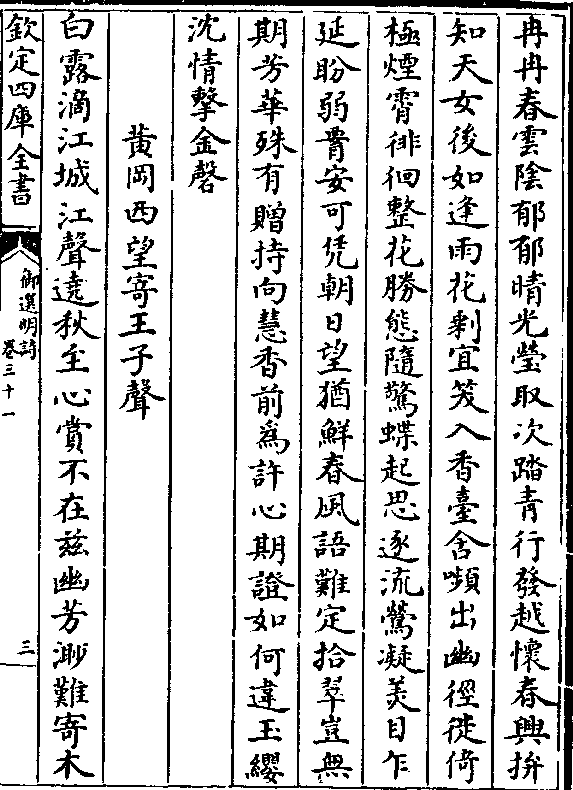 冉冉春雲陰郁郁晴光瑩取次踏青行發越懷春興拚
知天女後如逢雨花剩宜笑入香臺含嚬出幽徑徙倚
極煙霄徘徊整花勝態隨驚蝶起思逐流鶯凝美目乍
延盼弱骨安可凭朝日望猶鮮春風語難定拾翠豈無
期芳華殊有贈持向慧香前為許心期證如何違玉纓
沈情擊金磬
黄岡西望寄王子聲
白露滴江城江聲遶秋至心賞不在茲幽芳渺難寄木
欽定四庫全書
御選明詩
卷三十一
三